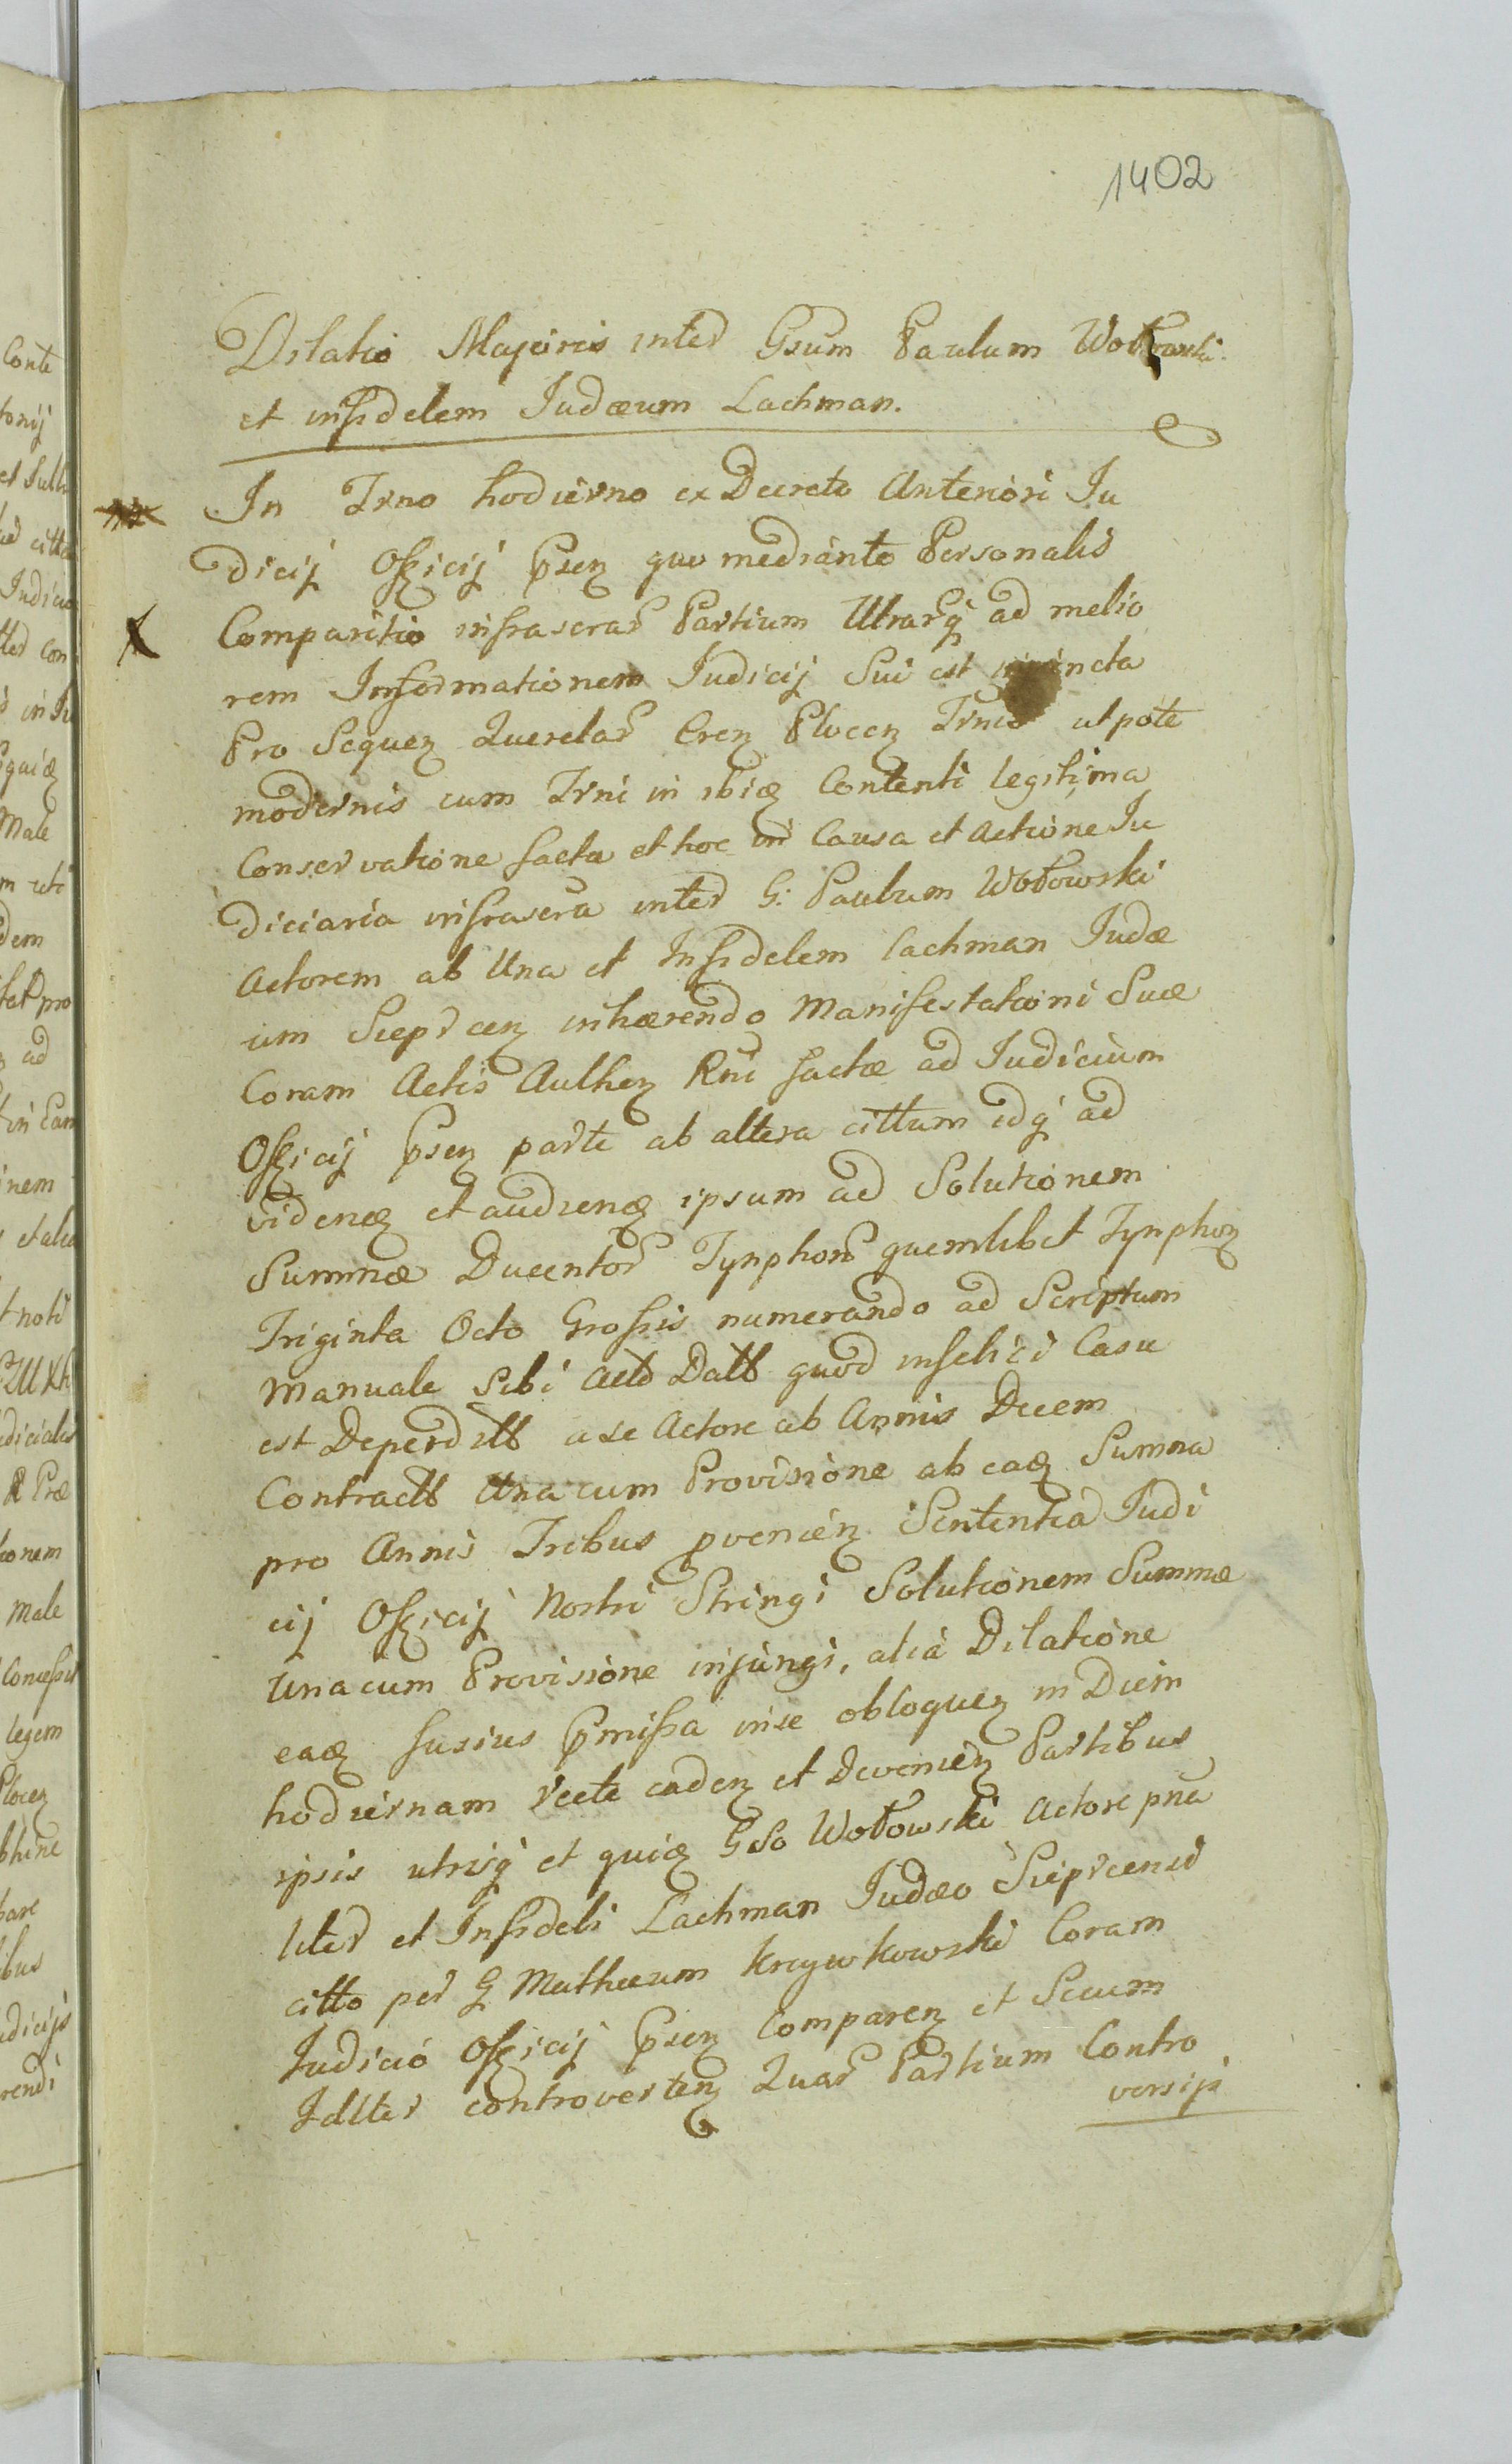 1402
Dilatio Majoris inter Gsum Paulum Wołowski
et infidelem Judæum Lachman.
In Trno hodierno ex Decreto Anteriori Ju
dicij Officij Psen quo mediante Personalis
Comparitio infrascrar Partium Utrarq ad melio
rem Informationem Judicij Sui est injuncta
Pro Sequen Querelar Cren Plocen Trnis utpote
modernis cum Trni in ibid Contenti legitima
Conservatione facta et hoc in Causa et Actione Ju
diciaria infrascra inter G: Paulum Wołowski
Actorem ab Una et Infidelem Lachman Judæ
um Sieprcen inhærendo Manifestationi Suæ
Coram Actis Authen Rni factæ ad Judicium
Officij Psen parte ab altera cittum idq ad
videnđ et audienđ ipsum ad Solutionem
Summæ Ducentor Tynphon quemlibet Tynphon
Triginta Octo Grossis numerando ad Scriptum
Manuale Sibi Acto Datt quod infelici Casu
est Deperditt a se Actore ab Annis Decem
Contractt Una cum Provisione ab eađ Summa
pro Annis Tribus pvenien Sententia Judi
cij Officij Nostri Stringi Solutionem Summæ
Una cum Provisione injungi, alia Dilatione
eađ fusius Pmissa in se obloquen in Diem
hodiernam recte caden et Devenien Partibus
ipsis utrisq et quiđ Gso Wołowski Actore pna
liter et Infideli Lachman Judæo Sieprcensi
citto per G Mathæum Krzywkowski Coram
Judicio Officij Psen Comparen et Secum
Jdlter controverten Quar Partium Contro
versijs